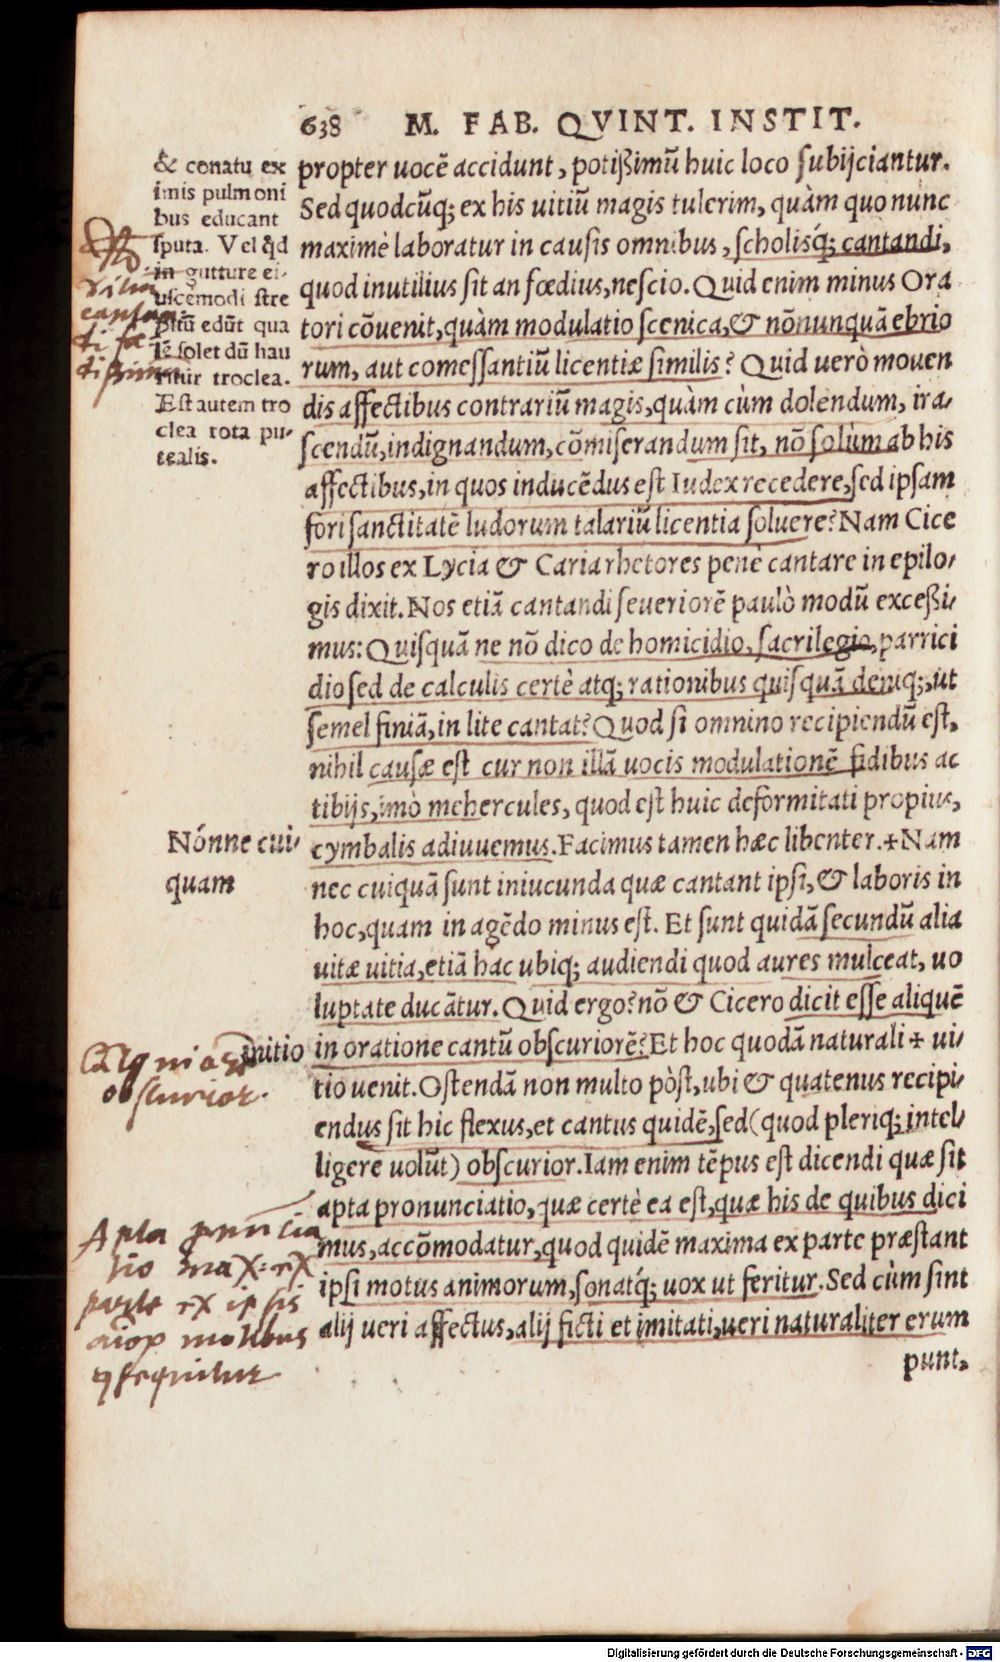 638 M. FAB. QVINT. INSTIT.
& conatu ex
imis pulmoni
bus educant
sputa. Vel qd
in gutture ei-
uscemodi stre
pitū edūt qua
lē solet dū hau
ritur troclea.
Est autem tro
clea rota pu-
tealis.
propter uocē accidunt, potißimū huic loco subijciantur.
Sed quodcūq; ex his uitiū magis tulerim, quàm quo nunc
maximè laboratur in causis omnibus, scholisq́; cantandi,
quod inutilius sit an fœdius, nescio. Quid enim minus Ora
tori cōuenit, quàm modulatio scenica, & nōnunquā ebrio
rum, aut comessantiū licentiæ similis? Quid uerò mouen
dis affectibus contrariū magis, quàm cùm dolendum, ira-
scendū, indignandum, cōmiserandum sit, nō solum ab his
affectibus, in quos inducēdus est Iudex recedere, sed ipsam
fori sanctitatē ludorum talariū licentia soluere? Nam Cice
ro illos ex Lycia & Caria rhetores penè cantare in epilo-
gis dixit. Nos etiā cantandi seueriorē paulò modū exceßi-
mus: Quisquā ne nō dico de homicidio, sacrilegio, parrici
dio sed de calculis certè atq; rationibus quisquā deniq;, ut
semel finiā, in lite cantat? Quod si omnino recipiendū est,
nihil causæ est cur non illā uocis modulationē fidibus ac
tibijs, imò mehercules, quod est huic deformitati propius,
Nónne cui-
quam
cymbalis adiuuemus. Facimus tamen hæc libenter. + Nam
nec cuiquā sunt iniucunda quæ cantant ipsi, & laboris in
hoc, quam in agēdo minus est. Et sunt quidā secundū alia
uitæ uitia, etiā hac ubiq; audiendi quod aures mulceat, uo
luptate ducātur. Quid ergo? nō & Cicero dicit esse aliquē
initio
in oratione cantū obscuriorē? Et hoc quodā naturali + ui-
obscurior.
tio uenit. Ostendā non multo pòst, ubi & quatenus recipi-
endus sit hic flexus, et cantus quidē, sed (quod pleriq; intel-
ligere uolūt) obscurior. Iam enim tēpus est dicendi quæ sit
apta pronunciatio, quæ certè ea est, quæ his de quibus dici
mus, accōmodatur, quod quidē maxima ex parte præstant
ipsi motus animorum, sonatq́; uox ut feritur. Sed cùm sint
alij ueri affectus, alij ficti et imitati, ueri naturaliter erum
punt.
Apta pnūcia
tio max: ex
parte ex ipsis
motibus
Digitalisierung gefördert durch die Deutsche Forschungsgemeinschaft - DFG